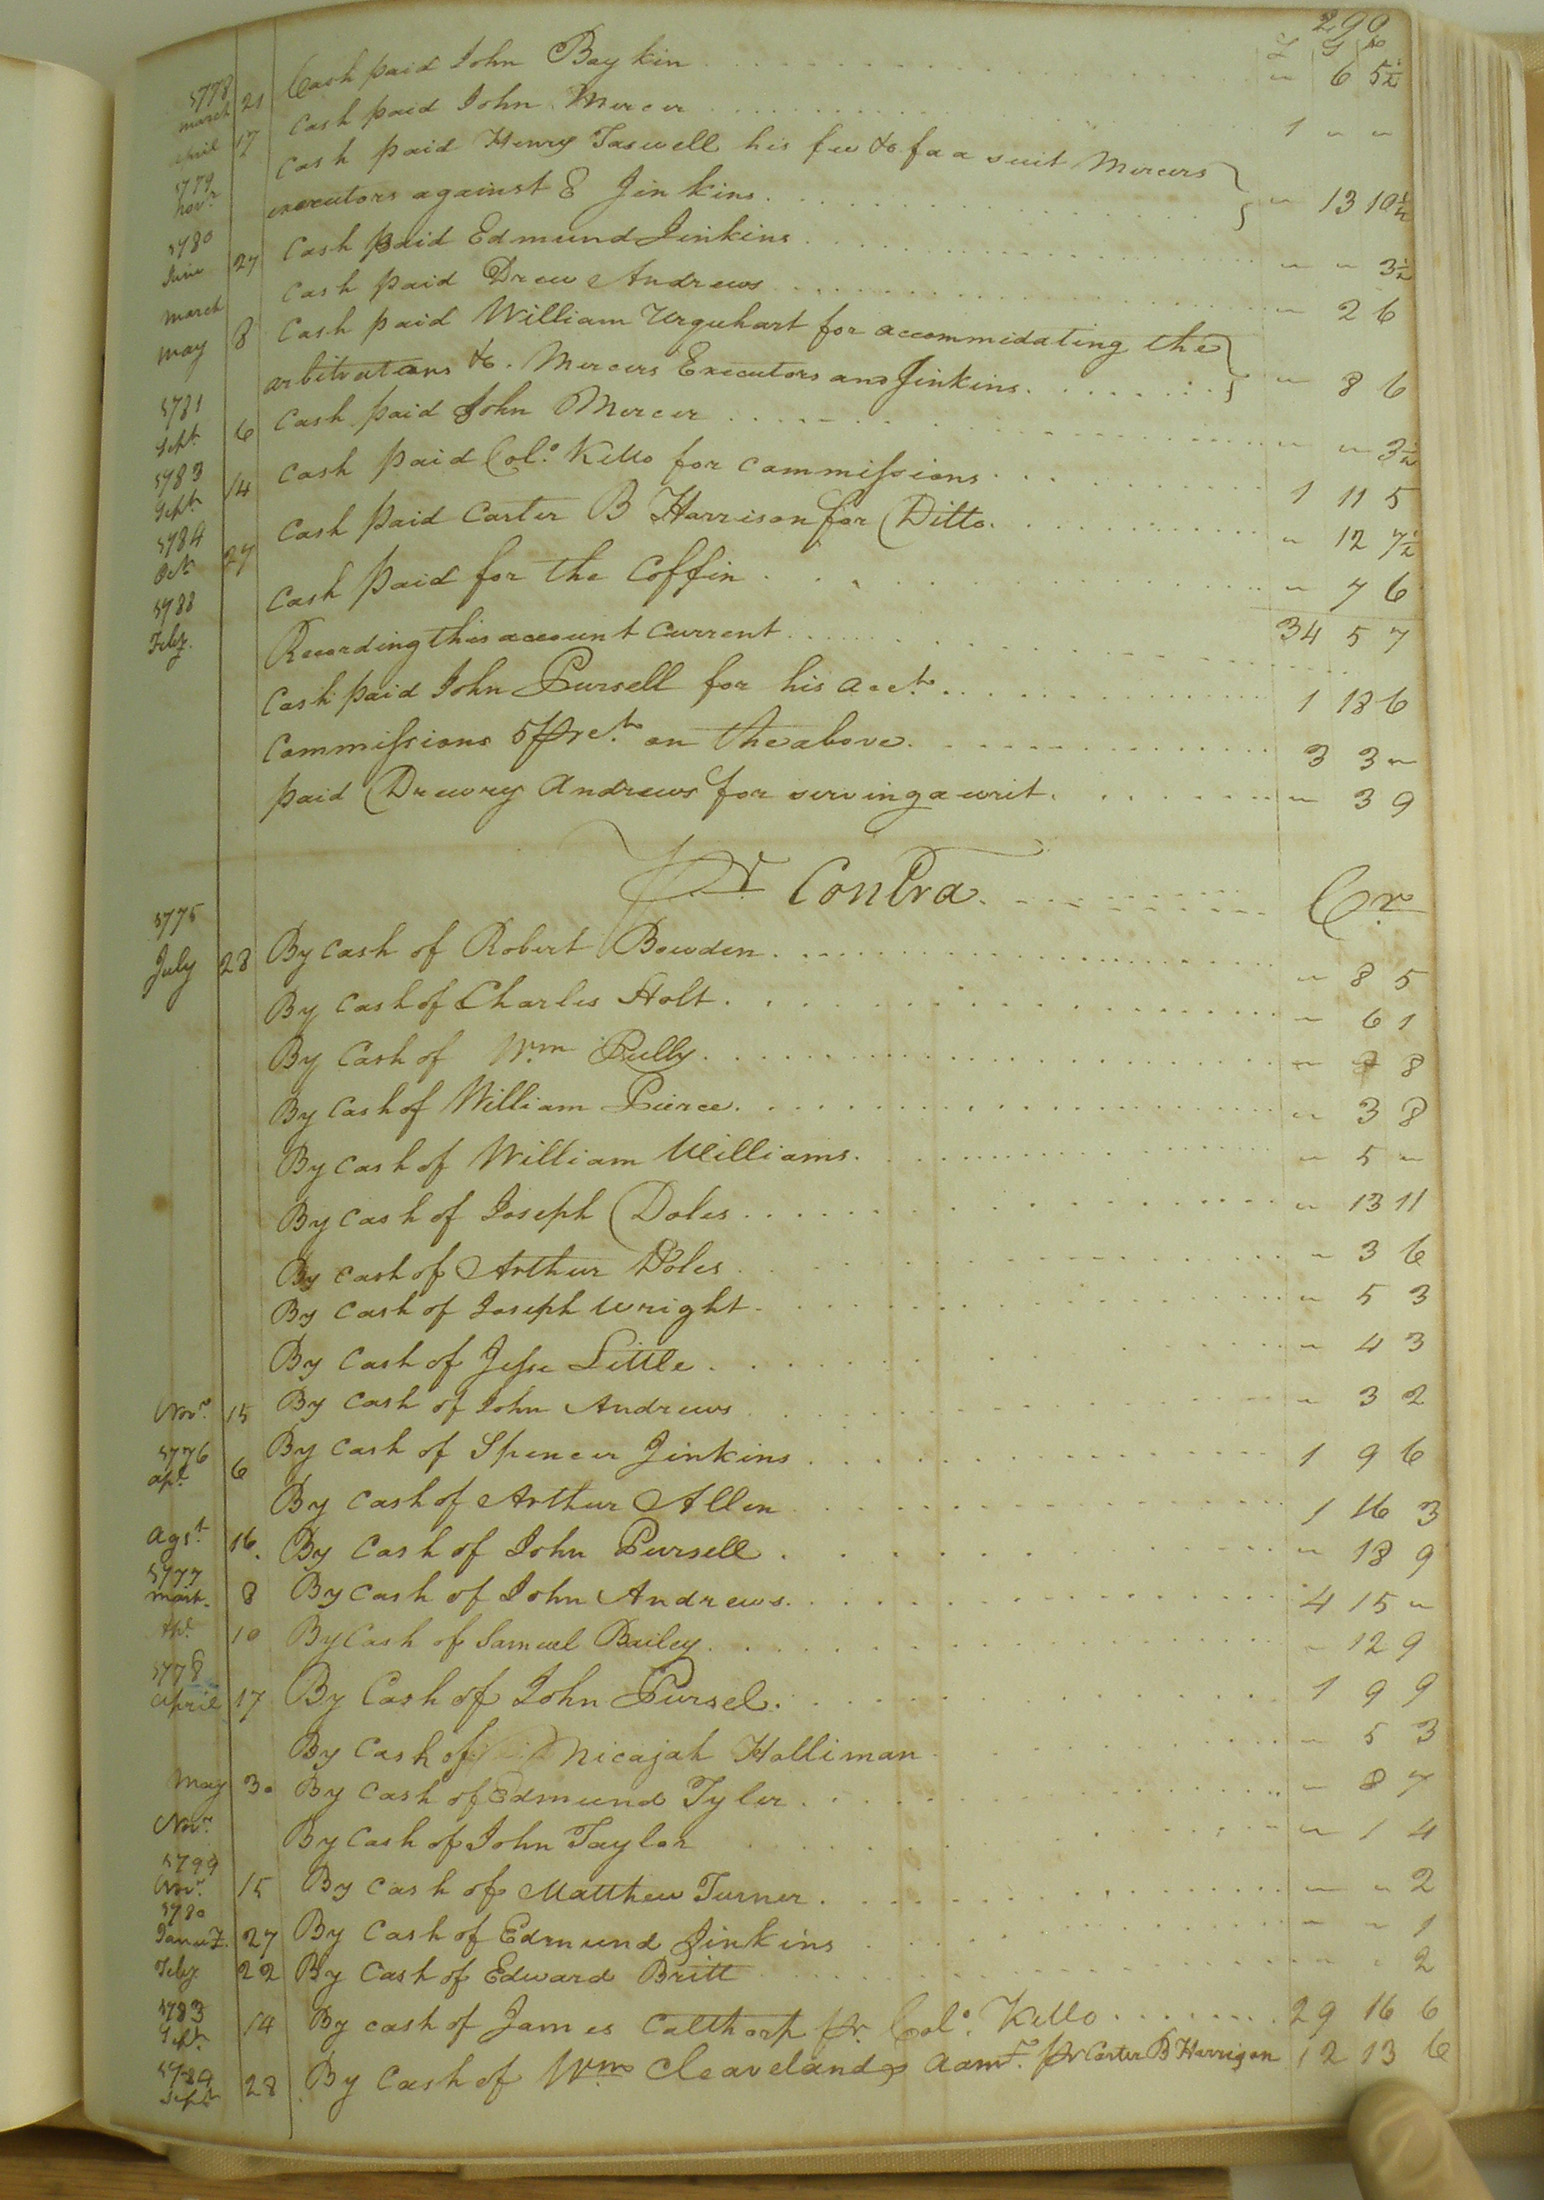 290
£ S D
1778 march 21 Cash paid John Baykin " 6 5½
april 17 Cash paid John Mercer 1 " "
1779 Novr. Cash paid Henry Taswell his fee &c for a suit Mercers
executors against E Jinkins " 13 10½
1780 June 27 Cash paid Edmund Jinkins " " 3½
march Cash paid Drew Andrews " 2 6
may 8 Cash paid William Urquhart for accommidating the
arbitrators &c. Mercers Executors and Jinkins " 8 6
1781 Sept. 6 Cash paid John Mercer " " 3½
1783 Sept. 14 Cash paid Colo. Kello for commissions 1 11 5
1784 Oct. 27 Cash paid Carter B Harrison for Ditto " 12 7½
1788 Feby. Cash paid for the Coffin " 7 6
34 5 7
Recording this account Current
Cash paid John Pursell for his acct. 1 18 6
Commissions 5 pr Ct. on the above 3 3 "
paid Drewry Andrews for serving a writ " 3 9
Pr Contra Cr.
1775
July 28 By Cash of Robert Bowden " 8 5
By Cash of Charles Holt " 6 1
By Cash of Wm Pully " 7 8
By Cash of William Pierce " 3 8
By Cash of William Williams " 5 "
By Cash of Joseph Doles " 13 11
By Cash of Arthur Doles " 3 6
By Cash of Joseph Wright " 5 3
By Cash of Jesse Little " 4 3
Novr. 15 By Cash of John Andrews " 3 2
1776 apl. 6 By Cash of Spencer Jinkins 1 9 6
By Cash of Arthur Allen 1 16 3
Agst. 16. By Cash of John Pursell " 18 9
1777 March 8 By Cash of John Andrews 4 15 "
Apl. 10 By Cash of Samuel Bailey " 12 9
1778 April 17 By Cash of John Pursel 1 9 9
By Cash of Micajah Holliman " 5 3
May 30 By Cash of Edmund Tyler " 8 7
Novr. By Cash of John Taylor " 1 4
1799 Novr. 15 By Cash of Matthew Turner " " 2
1780 Janury. 27 By Cash of Edmund Jinkins " " 1
Feby. 22 By Cash of Edward Britt " " 2
1783 Sept. 14 By Cash of James Calthorp pr. Colo. Kello 29 16 6
1784 Sept. 28 By Cash of Wm Cleaveland admr. pr Carter B Harrison 12 13 6